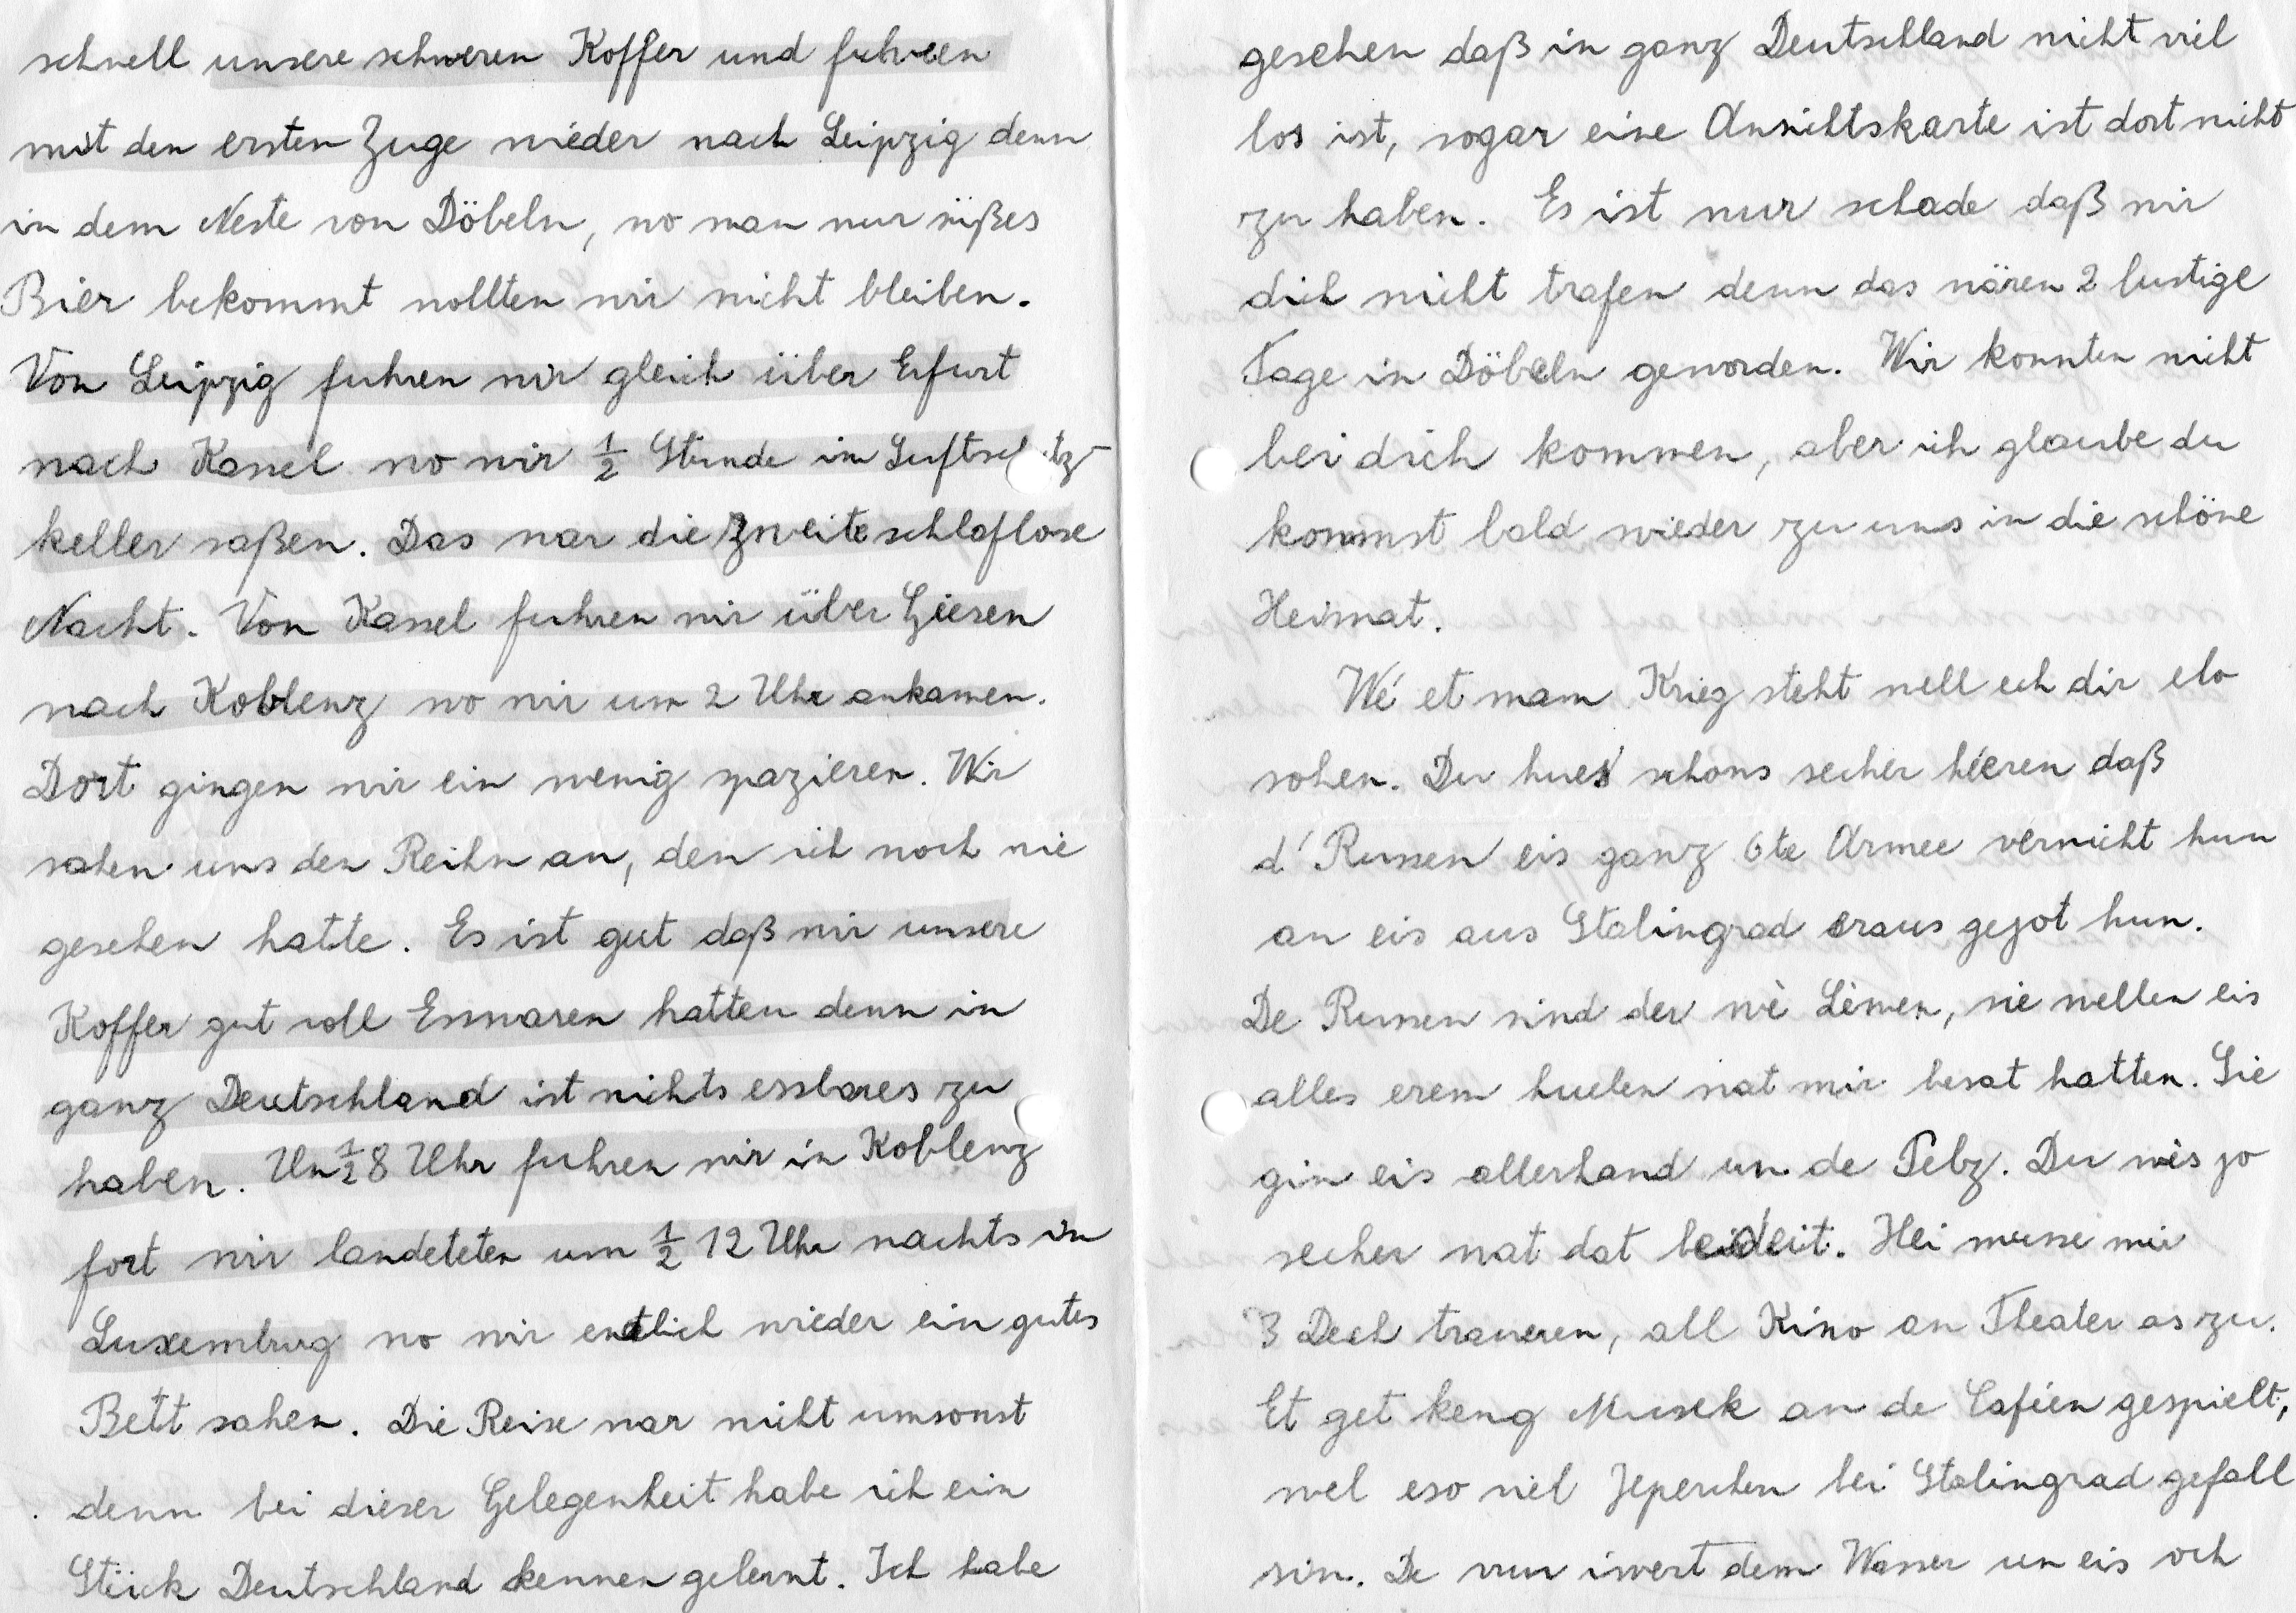 schnell unsere schweren Koffer und fuhren
mit den ersten Zuge wieder nach Leipzig denn
in dem Neste von Döbeln, wo man nur süßes
Bier bekommt wollten wir nicht bleiben.
Von Leipzig fuhren wir gleich über Erfurt
nach Kassel wo wir ½ Stunde im Luftschutz-
keller saßen. Das war die Zweite schlaflose
Nacht. Von Kassel fuhren wir über Giesen
nach Koblenz wo wir um 2 Uhr ankamen.
Dort gingen wir ein wenig spazieren. Wir
sahen uns den Reihn an, den ich noch nie
gesehen hatte. Es ist gut daß wir unsere
Koffer gut voll Esswaren hatten denn in
ganz Deutschland ist nichts essbares zu
haben. Um ½ 8 Uhr fuhren wir in Koblenz
fort wir landeteten um ½ 12 Uhr nachts in
Luxemburg wo wir endlich wieder ein gutes
Bett sahen. Die Reise war nicht umsonst
denn bei dieser Gelegenheit habe ich ein
Stück Deutschland kennen gelernt. Ich habe
gesehen daß in ganz Deutschland nicht viel
los ist, sogar eine Ansichtskarte ist dort nicht
zu haben. Es ist nur schade daß wir
dich nicht trafen denn das wären 2 lustige
Tage in Döbeln geworden. Wir konnten nicht
bei dich kommen, aber ich glaube du
kommst bald wieder zu uns in die schöne
Heimat.
Wé et mam Krieg steht well ech dir elo
sohen. Du hues schons secher héeren daß
d'Russen eis ganz 6te Armee, vernicht hun
an eis aus Stalingrad eraus gejot hun.
De Russen sind der wè Lèwen, sie wellen eis
alles erem huelen wat mir besat hatten. Sie
gin eis allerhand un de Pelz. Du wès jo
secher wat dat bedeit. Hei musse mir
3 Dech traueren, all Kino an Theater as zu.
Et get keng Musek an de Caféen gespielt,
wel eso viel Jeperchen bei Stalingrad gefall
sin. De vun iwert dem Wasser un eis och